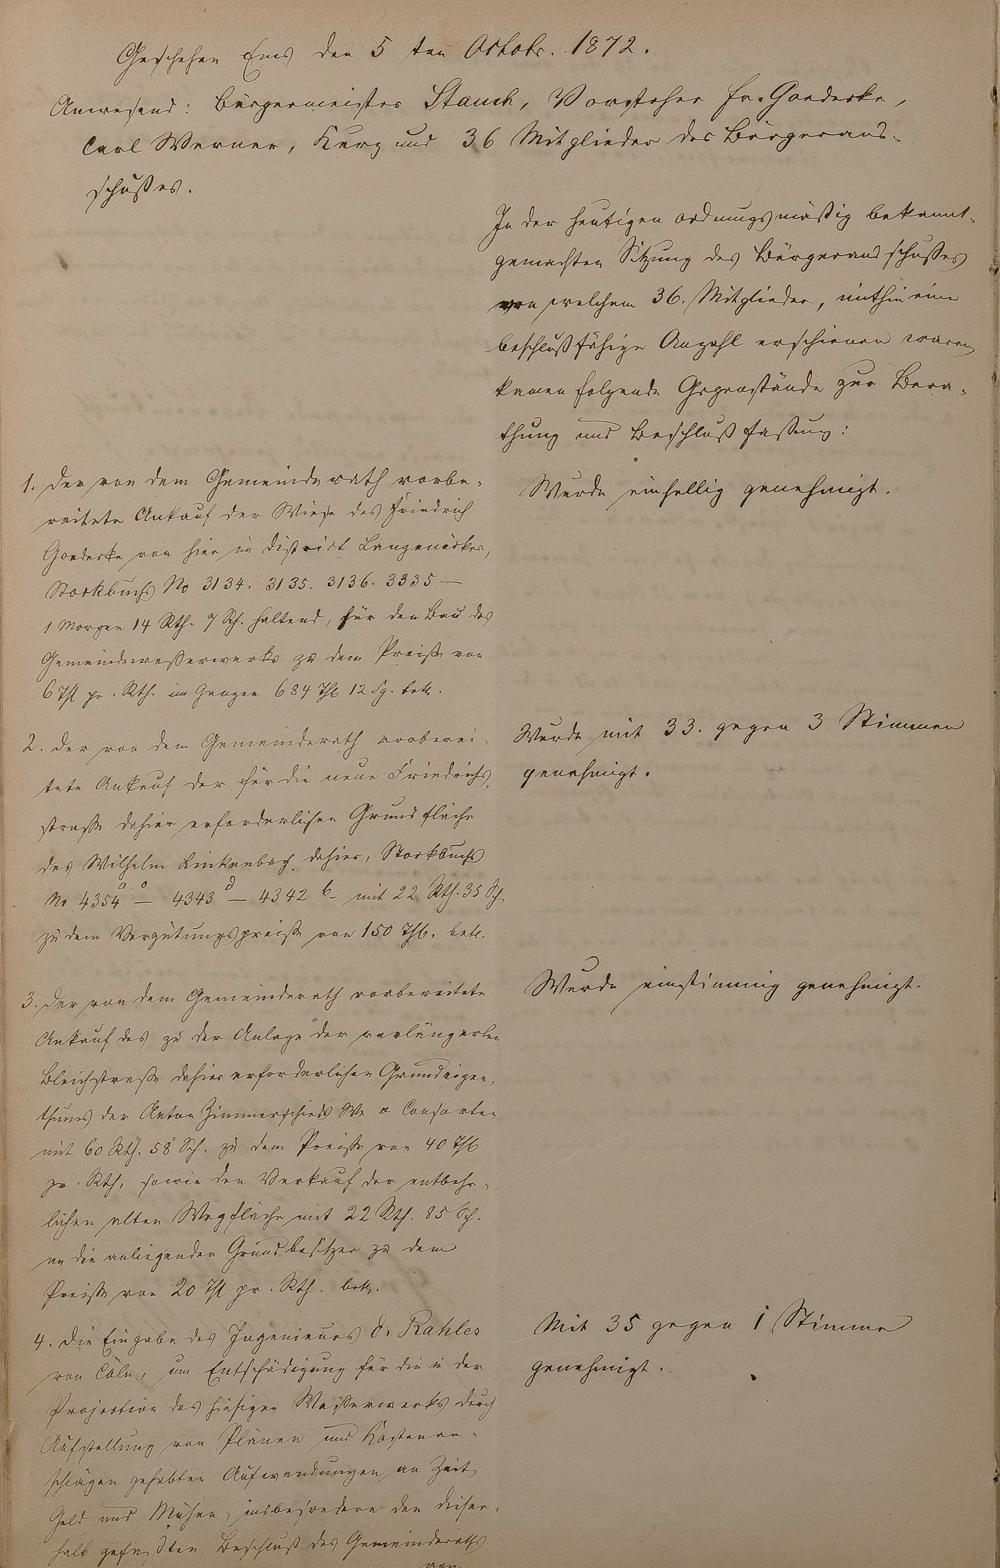 Geschehen Ems den 5 ten Octobr. 1872.
Anwesend: Bürgermeister Stauch, Vorsteher Fr. Goedecke,
Carl Werner, Kurz und 36 Mitglieder des Bürgeraus-
schußes.
In der heutigen ordnungsmäßig bekannt-
gemachten Sitzung des Bürgerausschußes
von welchem 36. Mitglieder, mithin eine
beschlußfähige Anzahl erschienen waren
kamen folgende Gegenstände zur Bera-
thung und Beschlußfassung:
1. Der von dem Gemeinderath vorbe-
reitete Ankauf der Wiese des Friedrich
Goedecke von hier im District Langenäcker,
Stockbuchs No 3134. 3135. 3136. 3335 —
1 Morgen 14 Rth. 9 Sch. haltend, für den Bau des
Gemeindewasserwerks zu dem Preiße von
6 Thl pr. Rth. im Ganzen 684 Thl 12 Sg. betr.
Wurde einhellig genehmigt.
2. Der von dem Gemeinderath vorberei-
tete Ankauf der für die neue Friedrichs-
straße dahier erforderlichen Grundfläche
des Wilhelm Linkenbach dahier, Stockbuchs
No 4354 a. — 4343 d — 4342 b - mit 22 Rth. 35 Sch.
zu dem Vergütungspreiße von 150 Thl. betr.
Wurde mit 33. gegen 3 Stimmen
genehmigt.
3. Der von dem Gemeinderath vorbereitete
Ankauf des zu der Anlage der verlängerten
Bleichstraße dahier erforderlichen Grundeigen-
thums der Anton Zimmerschieds We & Consorten
mit 60 Rth. 58 Sch. zu dem Preiße von 40 Thl
pr. Rth, sowie den Verkauf der entbehr-
lichen alten Wegfläche mit 22 Rth. 85 Sch.
an die anliegenden Grundbesitzer zu dem
Preiße von 20 Thl pr. Rth. betr.
Wurde einstimmig genehmigt.
4. Die Eingabe des Ingenieurs Rahles
von Cöln, um Entschädigung für die in der
Projection des hiesigen Wasserwerks durch
Aufstellung von Plänen und Kostenan-
schlägen gehabten Aufwendungen an Zeit,
Geld und Mühen, insbesondere den dieser-
halb gefaßten Beschluß des Gemeinderaths
von
Mit 35 gegen 1 Stimme
genehmigt.